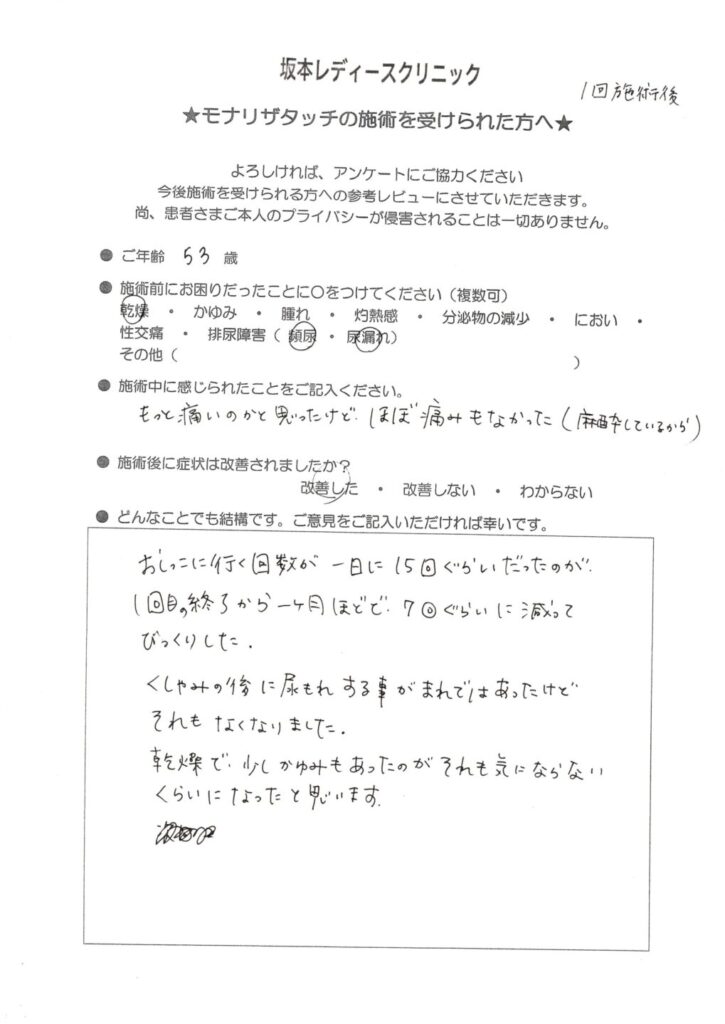 坂本レディースクリニック
1回施術後
★モナリザタッチの施術を受けられた方へ★
よろしければ、アンケートにご協力ください
今後施術を受けられる方への参考レビューにさせていただきます。
尚、患者さまご本人のプライバシーが侵害されることは一切ありません。
● ご年齢 53 歳
● 施術前にお困りだったことに〇をつけてください（複数可）
乾燥 ・ かゆみ ・ 腫れ ・ 灼熱感 ・ 分泌物の減少 ・ におい ・
性交痛 ・ 排尿障害（ 頻尿 ・ 尿漏れ）
その他（ ）
● 施術中に感じられたことをご記入ください。
もっと痛いのかと思ったけど、ほぼ痛みもなかった（麻酔しているから）
● 施術後に症状は改善されましたか？
改善した ・ 改善しない ・ わからない
● どんなことでも結構です。ご意見をご記入いただければ幸いです。
おしっこに行く回数が 一日に 15回ぐらいだったのが、
1回目の終了から一ヶ月ほどで、7回ぐらいに減って
びっくりした．
くしゃみの後に尿もれする事がまれではあったけど
それもなくなりました．
乾燥で、少しかゆみもあったのがそれも気にならない
くらいになったと思います．